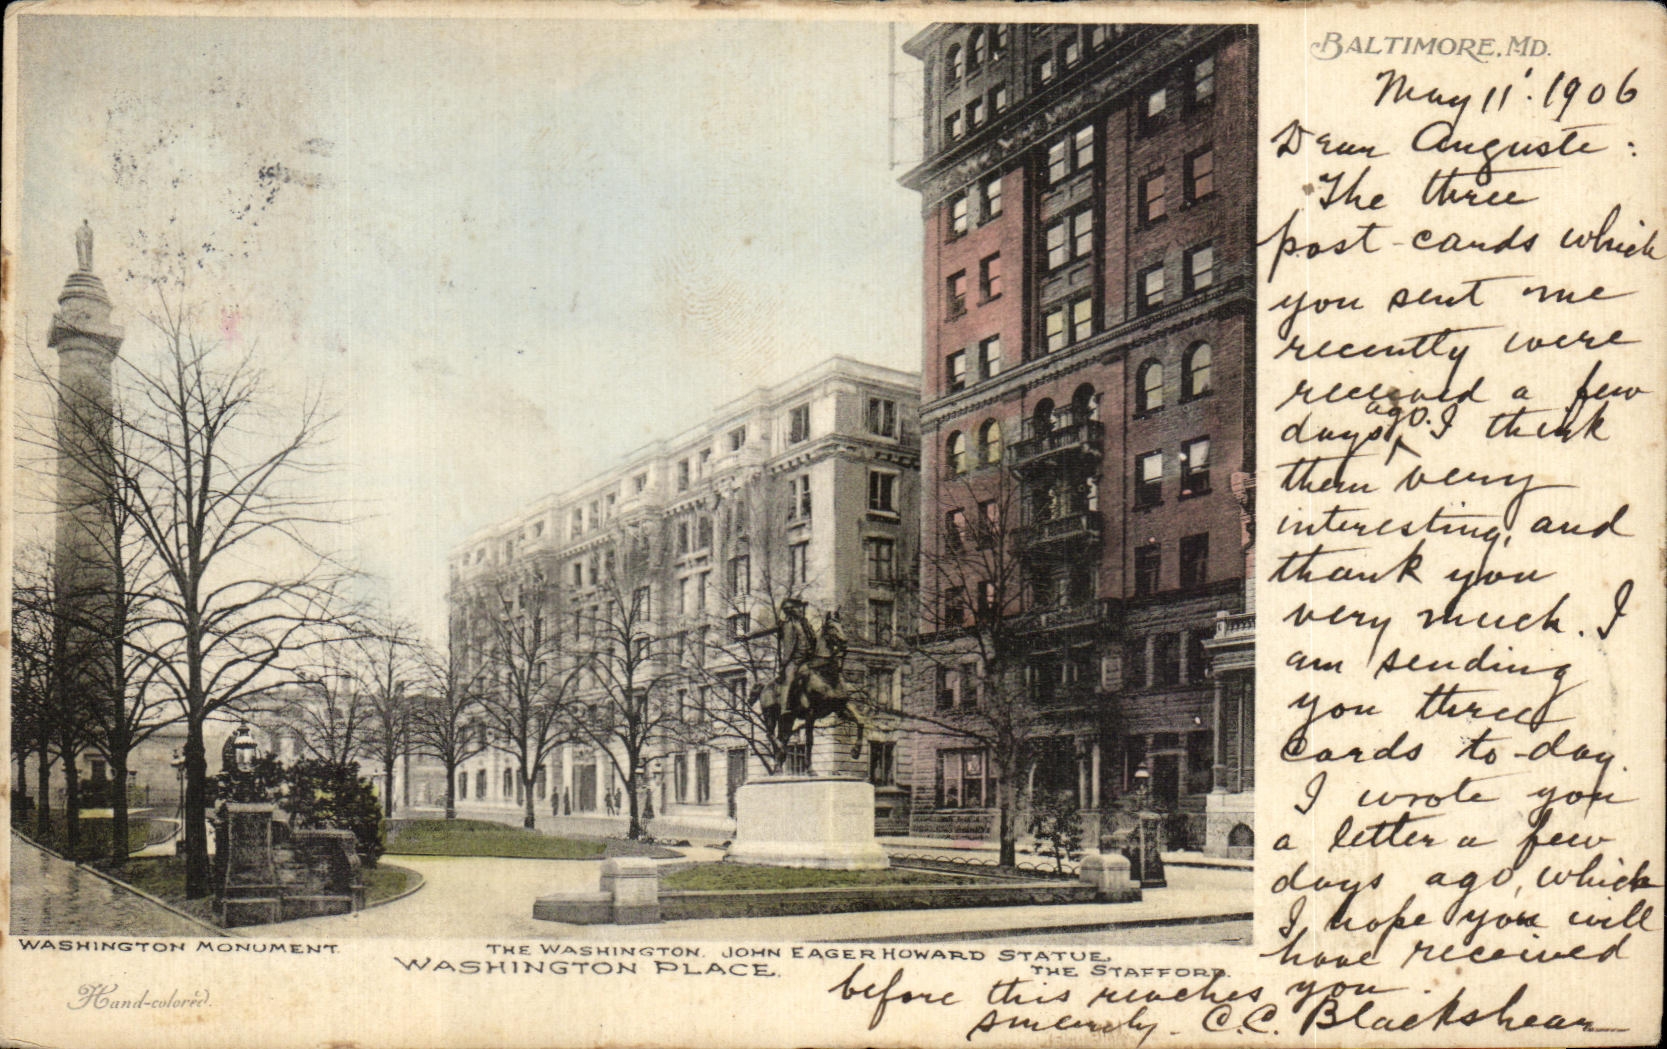 BALTIMORE, MD.
May 11' 1906
Dear Auguste:
The three
post-cards which
you sent me
recently were
received a few
days ago. I think
them very
interesting, and
thank you
very much. I
am sending
you three
cards to-day.
I wrote you
a letter a few
days ago, which
I hope you will
have received
before this reaches you.
Sincerely. C.C. Blackshear
WASHINGTON MONUMENT.
THE WASHINGTON. JOHN EAGER HOWARD STATUE,
WASHINGTON PLACE.
THE STAFFORD.
Hand-colored.